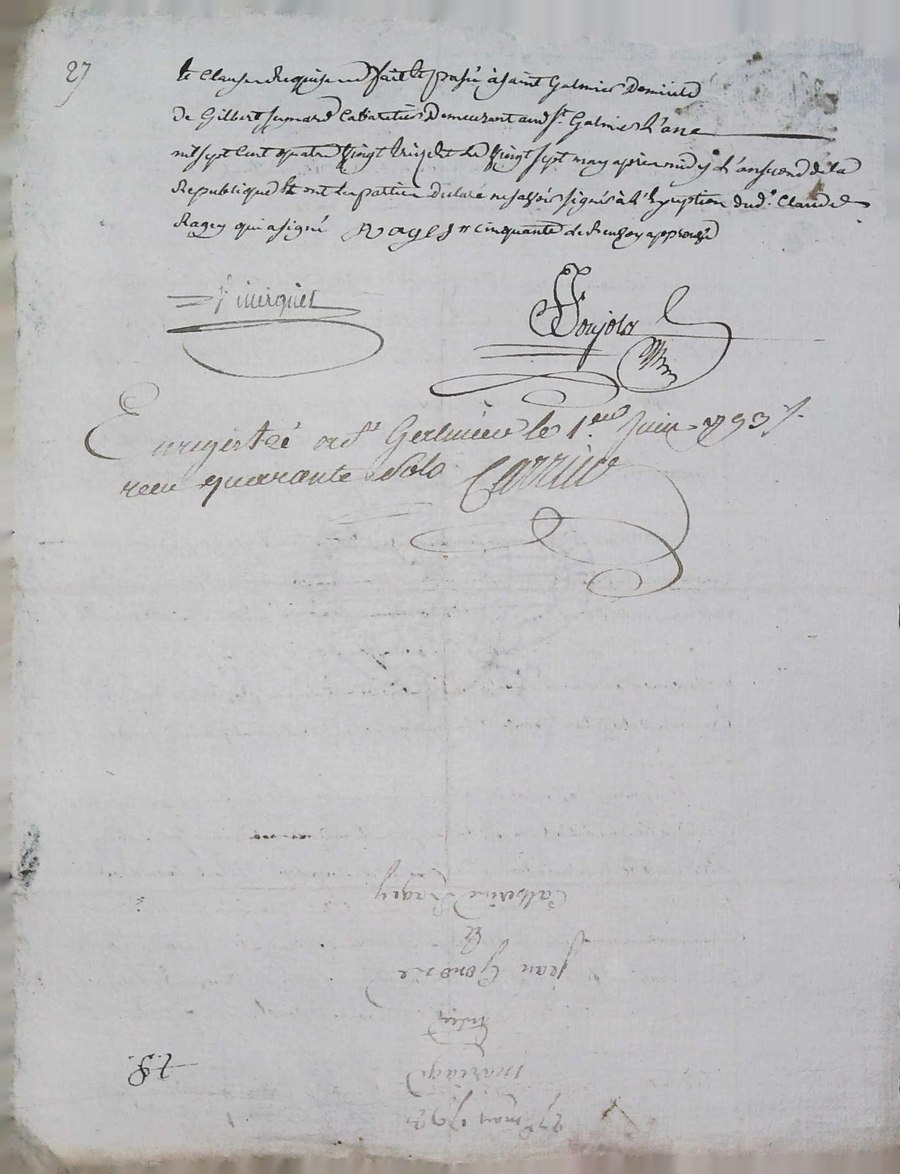 27
et Clauses requises en fait et passé à saint Galmier Domicile
de Gilbert Cabaretier Demeurant aud St. Galmier L'an
mil sept Cent quatre Vingt treize et le Vingt sept may après midy L'an second de la
Republique et ont les parties Déclaré ne sçavoir signer à L'exception dud. Claude
Ragey qui a signé Ragey cinquante de renvoy approuvé
Pujols
Enregistré a St Galmier le 1er Juin 1793
recu quarante Sols Carrier
27 may 1793
mariage
Entre
Jean
Et
Catherine Ragey